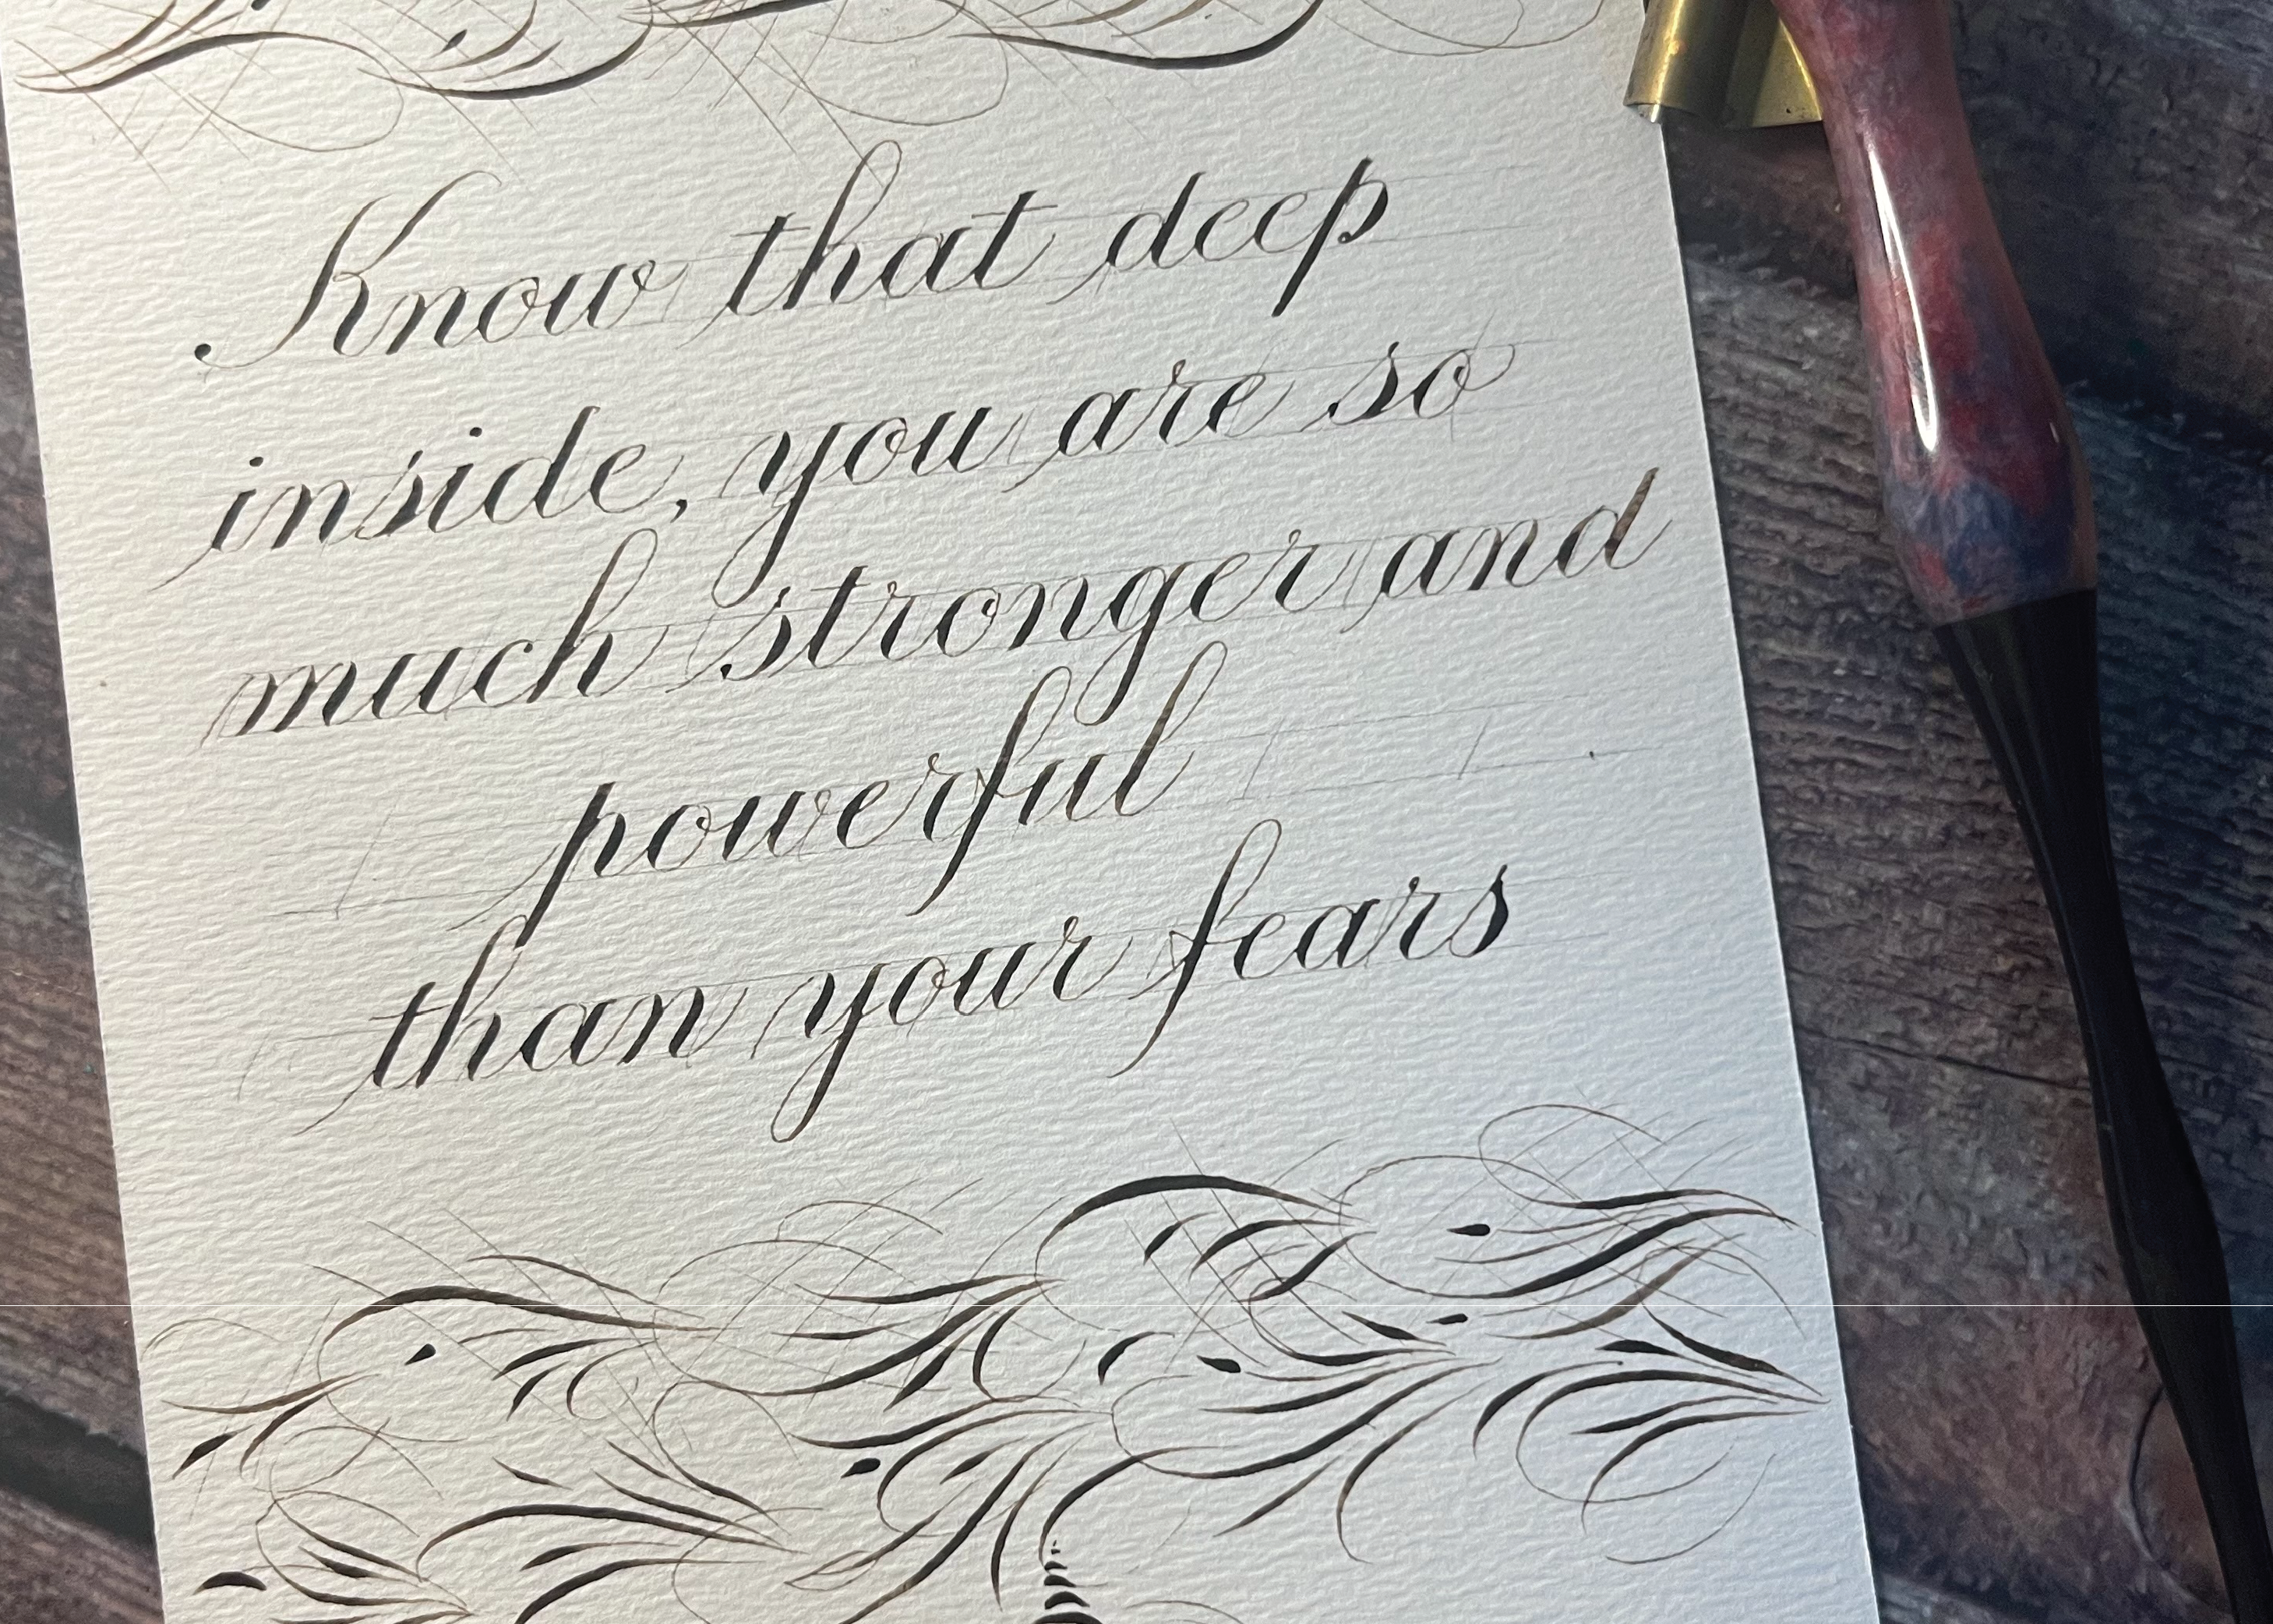 Know that deep
inside, you are so
much stronger and
powerful
than your fears